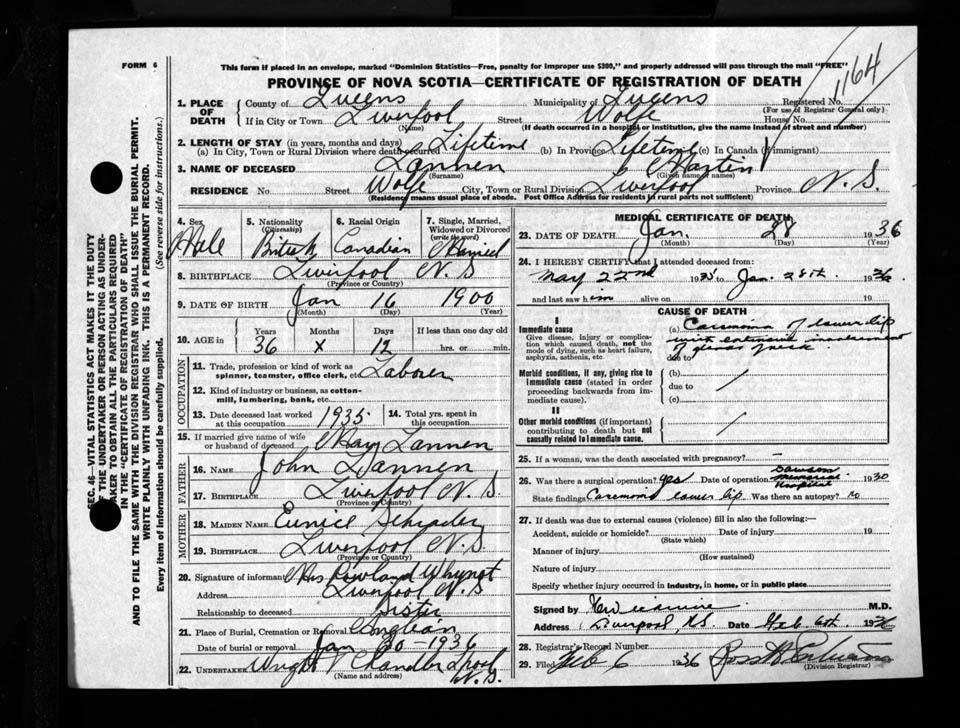 FORM 6
This form if placed in an envelope, marked "Dominion Statistics—Free, penalty for improper use $300," and properly addressed will pass through the mail "FREE"
PROVINCE OF NOVA SCOTIA—CERTIFICATE OF REGISTRATION OF DEATH
1164
1. PLACE OF DEATH
County of Queens Municipality of Queens Registered No.
(For use of Registrar General only)
If in City or Town Liverpool Street Wolfe House No.
(Name) (If death occurred in a hospital or institution, give the name instead of street and number)
2. LENGTH OF STAY (in years, months and days)
(a) In City, Town or Rural Division where death occurred Lifetime (b) In Province Lifetime (c) In Canada (if immigrant)
3. NAME OF DECEASED Lannen Martin
(Surname) (Given name or names)
RESIDENCE No Street Wolfe City, Town or Rural Division Liverpool Province N. S.
(Residence means usual place of abode. Post Office Address for residents in rural parts not sufficient)
4. Sex Male
5. Nationality (Citizenship) British
6. Racial Origin Canadian
7. Single, Married, Widowed or Divorced (write the word) Married
8. BIRTHPLACE Liverpool N. S
(Province or Country)
9. DATE OF BIRTH Jan 16 1900
(Month) (Day) (Year)
10. AGE in Years 36 Months x Days 12 If less than one day old hrs. or min.
OCCUPATION
11. Trade, profession or kind of work as spinner, teamster, office clerk, etc Laborer
12. Kind of industry or business, as cotton-mill, lumbering, bank, etc.
13. Date deceased last worked at this occupation 1935
14. Total yrs. spent in this occupation
15. If married give name of wife or husband of deceased May Lannen
FATHER
16. NAME John Lannen
17. BIRTHPLACE Liverpool N. S.
(Province or Country)
MOTHER
18. MAIDEN NAME Eunice
19. BIRTHPLACE Liverpool N. S.
(Province or Country)
20. Signature of informant Mrs Rowland Whynot
Address Liverpool N. S
Relationship to deceased Sister
21. Place of Burial, Cremation or Removal
Date of burial or removal Jan 30 - 1936
22. UNDERTAKER Wright Chandler Lpool N. S.
(Name and address)
MEDICAL CERTIFICATE OF DEATH
23. DATE OF DEATH Jan. 28 1936
(Month) (Day) (Year)
24. I HEREBY CERTIFY that I attended deceased from:
May 22nd 1935 to Jan. 28th. 1936
and last saw him alive on 19
CAUSE OF DEATH
I
Immediate cause
Give disease, injury or complication which caused death, not the mode of dying, such as heart failure, asphyxia, asthenia, etc.
(a) Carcinoma of lower lip
with extensive involvement
due to of glands of neck
Morbid conditions, if any, giving rise to Immediate cause (stated in order proceeding backwards from immediate cause).
(b)
due to
(c)
II
Other morbid conditions (if important) contributing to death but not causally related to Immediate cause.
25. If a woman, was the death associated with pregnancy? —
26. Was there a surgical operation? yes Date of operation Dawson Memorial Hospital 1930
State findings Carcinoma lower lip Was there an autopsy? no
27. If death was due to external causes (violence) fill in also the following:—
Accident, suicide or homicide? Date of injury 19
(State which)
Manner of injury
(How sustained)
Nature of injury
Specify whether injury occurred in industry, in home, or in public place
Signed by M.D.
Address Liverpool, N.S. Date Feb 6th. 1936
28. Registrar's Record Number
29. Filed Feb 6 1936 Ross
(Division Registrar)
SEC. 46—VITAL STATISTICS ACT MAKES IT THE DUTY
OF THE UNDERTAKER OR PERSON ACTING AS UNDER-
TAKER TO OBTAIN ALL THE PARTICULARS REQUIRED
IN THE "CERTIFICATE OF REGISTRATION OF DEATH"
AND TO FILE THE SAME WITH THE DIVISION REGISTRAR WHO SHALL ISSUE THE BURIAL PERMIT.
WRITE PLAINLY WITH UNFADING INK. THIS IS A PERMANENT RECORD.
Every item of Information should be carefully supplied. (See reverse side for instructions.)